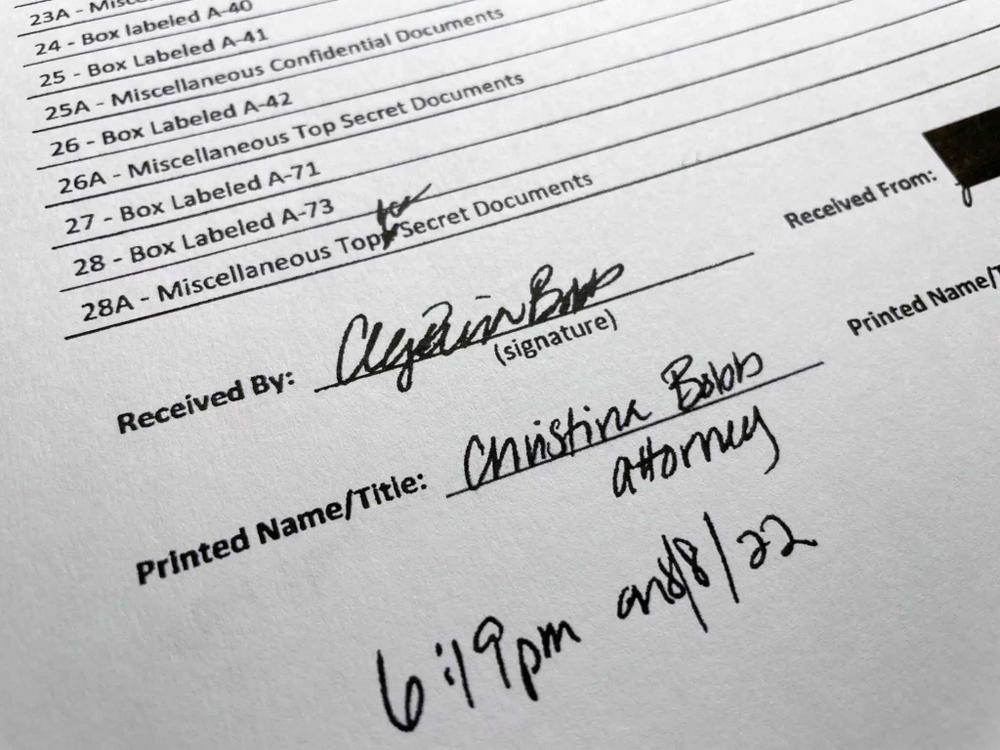 23A - Misce
24 - Box labeled A-40
25 - Box Labeled A-41
25A - Miscellaneous Confidential Documents
26 - Box Labeled A-42
26A - Miscellaneous Top Secret Documents
27 - Box Labeled A-71
28 - Box Labeled A-73
28A - Miscellaneous Top Secret Documents
Received By:
(signature)
Received From:
Printed Name/Title: Christina Bobb
attorney
Printed Name/T
6:19pm on 8/8/22